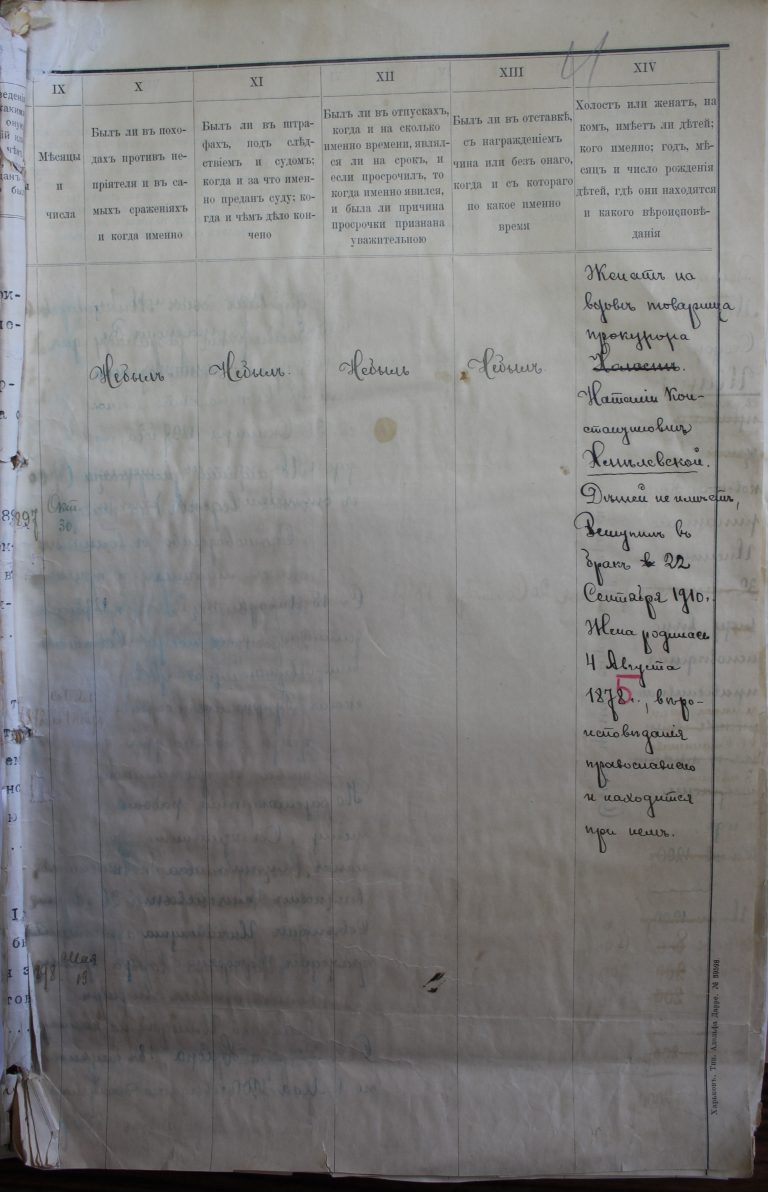 IX
Мѣсяцы
и
числа
X
Былъ ли въ похо-
дахъ противъ не-
пріятеля и въ са-
мыхъ сраженіяхъ
и когда именно
XI
Былъ ли въ штра-
фахъ, подъ слѣд-
ствіемъ и судомъ;
когда и за что имен-
но преданъ суду; ко-
гда и чѣмъ дѣло кон-
чено
XII
Былъ ли въ отпускахъ,
когда и на сколько
именно времени, являл-
ся ли на срокъ, и
если просрочилъ, то
когда именно явился,
и была ли причина
просрочки признана
уважительною
XIII
Былъ ли въ отставкѣ,
съ награжденіемъ
чина или безъ онаго,
когда и съ котораго
по какое именно
время
XIV
Холостъ или женатъ, на
комъ, имѣетъ ли дѣтей;
кого именно; годъ, мѣ-
сяцъ и число рожденія
дѣтей, гдѣ они находятся
и какого вѣроисповѣ-
данія
297
Окт.
30.
Мая
19
Небылъ
Небылъ.
Небылъ
Небылъ
Женатъ на
вдовѣ товарища
прокурора
Наталіи Кон-
стантиновнѣ
Дѣтей не имѣетъ,
Вступилъ въ
бракъ в 22
Сентября 1910 г.
Жена родилась
4 Августа
1878 г., вѣро-
5
исповѣданія
православнаго
и находится
при немъ.
Харьковъ. Тип. Адольфа Дарре. № 59598